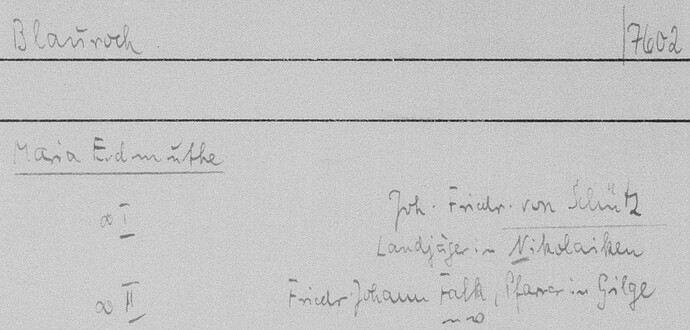 Blaurock. 7602
Maria Erdmuthe
∞ I Joh. Friedr. von Schütz
Landjäger in Nikolaiken
∞ II Friedr. Johann Falk, Pfarrer in Gilge